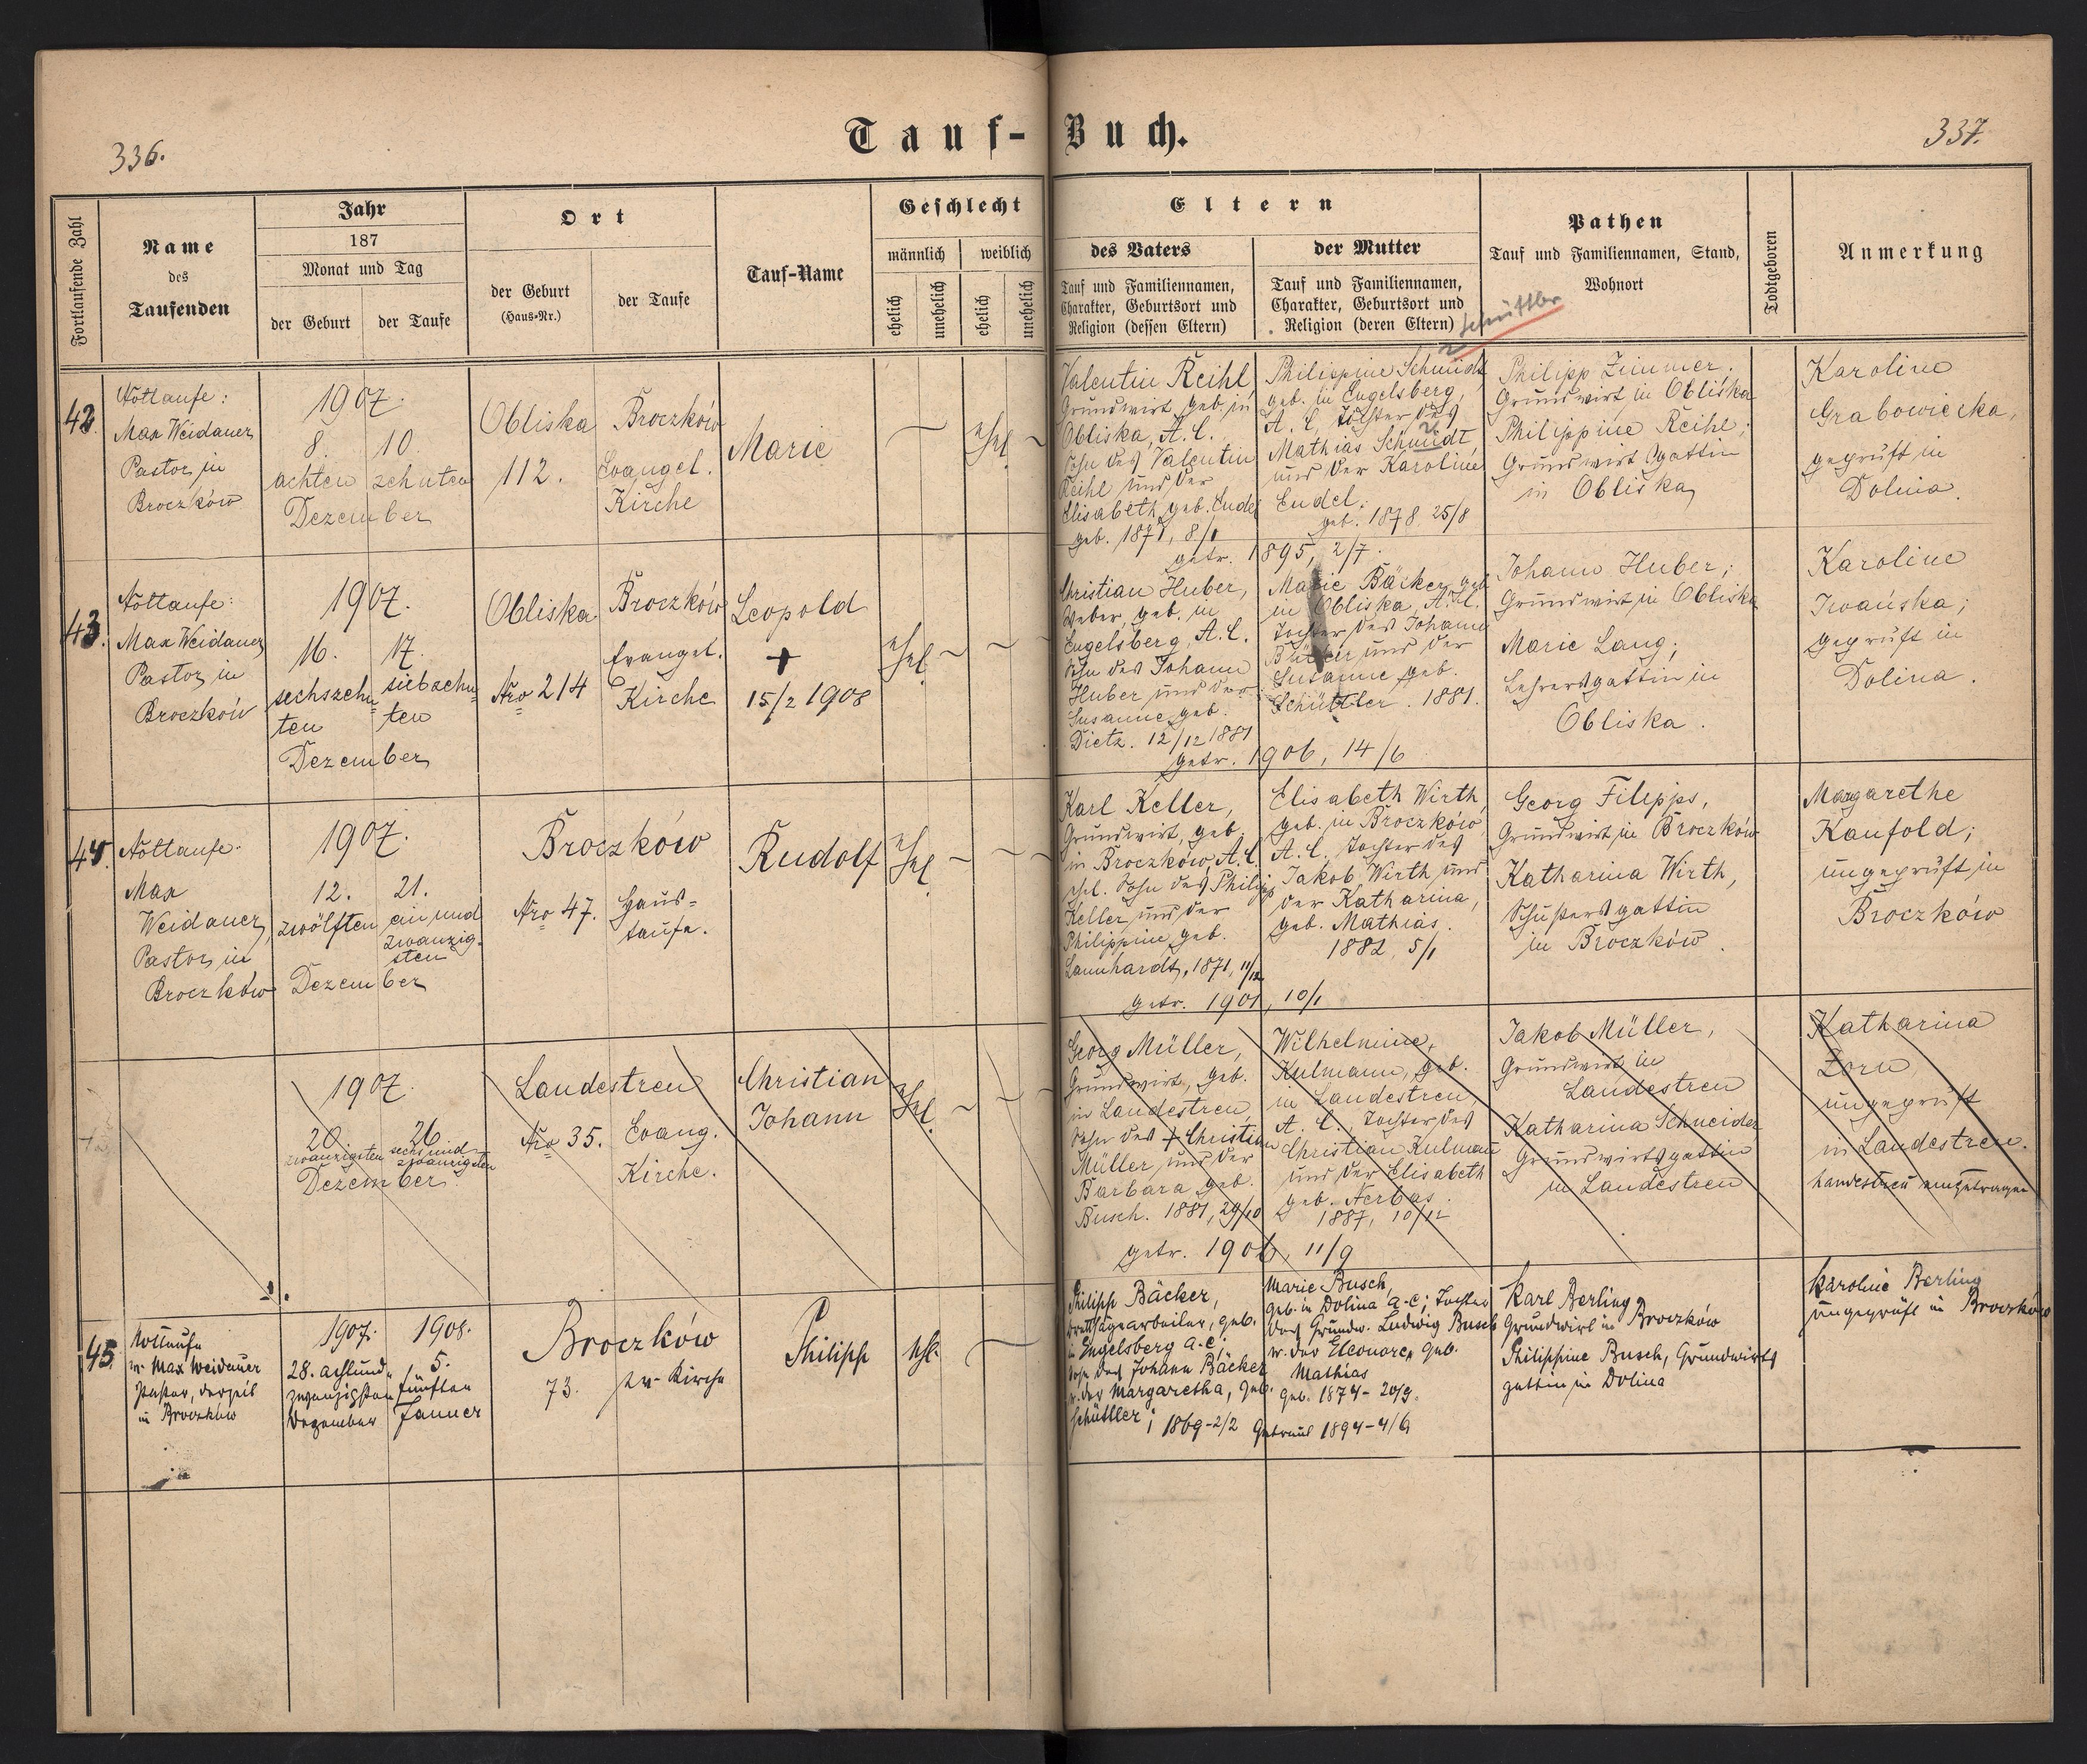 336.
Tauf-Buch.
337.
Fortlaufende Zahl
Name
des
Taufenden
Jahr
187
Monat und Tag
der Geburt
der Taufe
Ort
der Geburt
(Haus-Nr.)
der Taufe
Tauf-Name
Geschlecht
männlich
weiblich
ehelich
unehelich
ehelich
unehelich
Eltern
des Vaters
Tauf und Familiennamen,
Charakter, Geburtsort und
Religion (dessen Eltern)
der Mutter
Tauf und Familiennamen,
Charakter, Geburtsort und
Religion (deren Eltern)
Schüttler
Pathen
Tauf und Familiennamen, Stand,
Wohnort
Todtgeboren
Anmerkung
42.
Nottaufe:
Max Weidauer
Pastor in
Broczków
1907.
8.
achten
10.
zehnten
Dezember
Obliska
112.
Broczków
Evangel.
Kirche
Marie
ehel
Valentin Reihl
Grundwirt, geb. in
Obliska, A.C.
Sohn des Valentin
Reihl und der
Elisabeth, geb. Endel
geb. 1871, 8/1
Philippine Schmidt
geb. in Engelsberg,
A. C., Tochter des
Mathias Schmidt
und der Karoline
Endel.
geb. 1878 25/8
getr. 1895, 2/7.
Philipp Zimmer.
Grundwirt in Obliska
Philippine Reihl;
Grundwirtsgattin
in Obliska
Karoline
Grabowiecka,
geprüft in
Dolina.
43.
Nottaufe:
Max Weidauer
Pastor in
Broczków
1907.
16.
sechszehn=
ten
17.
siebzehn=
ten
Dezember
Obliska
Nro 214
Broczków
Evangel.
Kirche
Leopold
+
15/2 1908
ehel
Christian Huber,
Weber, geb. in
Engelsberg, A.C.
Sohn des Johann
Huber und der
Susanne geb.
Dietz. 12/12 1881
Marie Bäcker, geb.
in Obliska, A.C.
Tochter des Johann
Bäcker und der
Susanne geb.
Schüttler. 1881.
getr. 1906, 14/6
Johann Huber;
Grundwirt in Obliska
Marie Lang;
Lehrersgattin in
Obliska.
Karoline
Iwańska;
geprüft in
Dolina.
44.
Nottaufe.
Max
Weidauer,
Pastor in
Broczków
1907.
12.
zwölften
21.
ein und
zwanzig-
sten
Dezember
Broczków
Nro 47.
Haus=
taufe.
Rudolf
ehel
Karl Keller,
Grundwirt, geb.
in Broczków, A.C.
ehel. Sohn des Philipp
Keller und der
Philippine geb.
Lannhardt, 1871, 11/12
Elisabeth Wirth,
geb. in Broczków
A. C. Tochter des
Jakob Wirth und
der Katharina,
geb. Mathias.
1882, 5/1
getr. 1901, 10/1
Georg Filepps,
Grundwirt in Broczków
Katharina Wirth,
Schustersgattin
in Broczków.
Margarethe
Kaufold;
ungeprüft in
Broczków
1907.
20.
zwanzigsten
26
sechs und
zwanzigsten
Dezember.
Landestreu
Nro 35.
Evang.
Kirche.
Christian
Johann
ehel.
Georg Müller,
Grundwirt, geb.
in Landestreu,
Sohn des + Christian
Müller und der
Barbara, geb.
Busch. 1881, 29/10
Wilhelmine,
Kulmann, geb.
in Landestreu
A. C., Tochter des
Christian Kulmann
und der Elisabeth
geb. Nerbas.
1887, 10/12
getr. 1906, 11/9
Jakob Müller,
Grundwirt in
Landestreu
Katharina Schneider
Grundwirtsgattin
in Landestreu
Katharina
Zorn
ungeprüft
in Landestreu.
Landestreu eingetragen
45.
Nottaufe
v. Max Weidauer
Pastor, derzeit
in Broczków
1907.
28. achtund=
zwanzigsten
Dezember
1908.
5.
fünften
Januer
Broczków
73.
ev. Kirche
Philipp
ehel.
Philipp Bäcker,
Brettsägearbeiter, geb.
in Engelsberg A.C.;
Sohn des Johann Bäcker
u. der Margaretha, geb.
Schüttler; 1869-2/2
Marie Busch,
geb. in Dolina A.C; Tochter
des Grundw. Ludwig Busch
u. der Eleonore, geb.
Mathias
geb. 1874-20/9.
Getraut 1894-4/6
Karl Berling
Grundwirt in Broczków
Philippine Busch, Grundwirts
gattin in Dolina
Karoline Berling
ungeprüft in Broczków